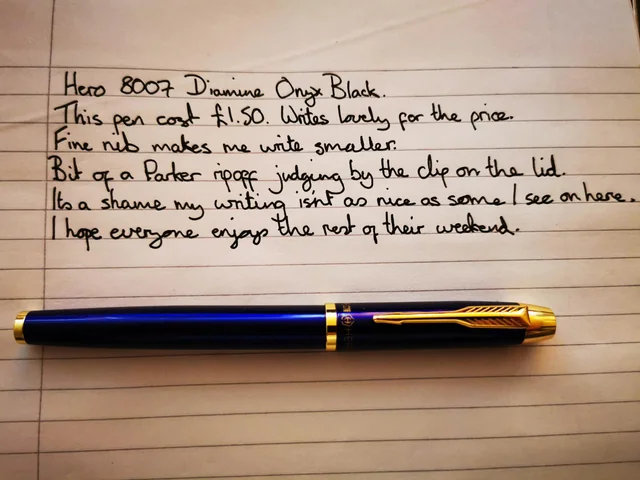 Hero 8007 Diamine Onyx Black.
This pen cost £1.50. Writes lovely for the price.
Fine nib makes me write smaller.
Bit of a Parker ripoff judging by the clip on the lid.
Its a shame my writing isn't as nice as some I see on here.
I hope everyone enjoys the rest of their weekend.